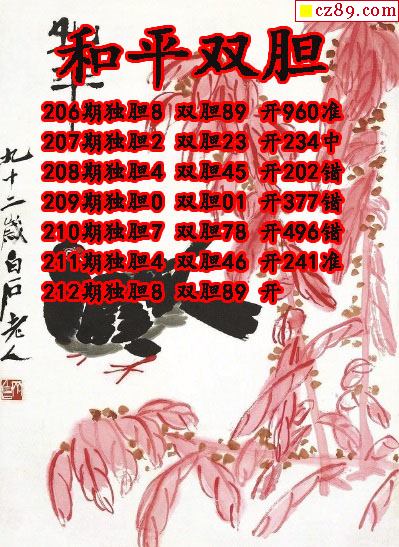 cz89.com
和平双胆
206期独胆8 双胆89 开960准
207期独胆2 双胆23 开234中
208期独胆4 双胆45 开202错
209期独胆0 双胆01 开377错
210期独胆7 双胆78 开496错
211期独胆4 双胆46 开241准
212期独胆8 双胆89 开
九十二岁白石老人